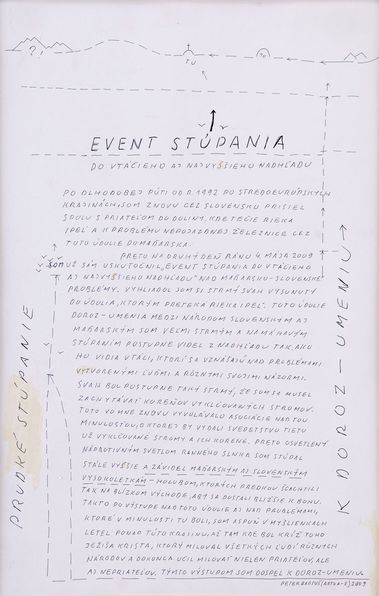 ?
TU
TU
EVENT STÚPANIA
DO VTÁČIEHO AJ NAJVYŠŠIEHO NADHĽADU
PO DLHODOBEJ PÚTI OD R. 1992 PO STREDOEURÓPSKYCH
KRAJINÁCH, SOM ZNOVU CEZ SLOVENSKO PRIŠIEL
SPOLU S PRIATEĽOM DO DOLINY, KDE TEČIE RIEKA
IPEĽ A K PROBLÉMU NEDOJAZDNEJ ŽELEZNICE CEZ
TOTO ÚDOLIE DO MAĎARSKA.
PRETO NA DRUHÝ DEŇ RÁNO 4. MÁJA 2009
SOM UŽ SÁM USKUTOČNIL „EVENT STÚPANIA DO VTÁČIEHO
AJ NAJVYŠŠIEHO NADHĽADU" NAD MAĎARSKO-SLOVENSKÉ
PROBLÉMY. VYHLIADOL SOM SI STRMÝ SVAH VYSUNUTÝ
DO ÚDOLIA, KTORÝM PRETEKÁ RIEKA IPEĽ. TOTO ÚDOLIE
DOROZ-UMENIA MEDZI NÁRODOM SLOVENSKÝM AJ
MAĎARSKÝM SOM VEĽMI STRMÝM A NAMÁHAVÝM
STÚPANÍM POSTUPNE VIDEL Z NADHĽADU TAK, AKO
HO VIDIA VTÁCI, KTORÍ SA VZNÁŠAJÚ NAD PROBLÉMAMI
VYTVORENÝMI ĽUĎMI A RÔZNYMI SVOJIMI NÁZORMI.
SVAH BOL POSTUPNE TAKÝ STRMÝ, ŽE SOM SA MUSEL
ZACHYTÁVAŤ KOREŇOV VYKLČOVANÝCH STROMOV.
TOTO VO MNE ZNOVU VYVOLÁVALO ASOCIÁCIE NAD TOU
MINULOSŤOU, O KTOREJ BY VYDALI SVEDECTVO TIETO
UŽ VYKLČOVANÉ STROMY A ICH KORENE. PRETO OSVETLENÝ
SVETLOM RANNÉHO SLNKA SOM STÚPAL
STÁLE VYŠŠIE A ZÁVIDEL MAĎARSKÝM AJ SLOVENSKÝM
VYSOKOLETKÁM - HOLUBOM, KTORÝCH PREDKOV ŠĽACHTILI
TAK NA BLÍZKOM VÝCHODE, ABY SA DOSTALI BLIŽŠIE K BOHU.
TAKTO DO VÝSTUPE NAD TOTO ÚDOLIE AJ NAD PROBLÉMAMI,
KTORÉ V MINULOSTI TU BOLI, SOM ASPOŇ V MYŠLIENKACH
LETEL PONAD TÚTO KRAJINU AŽ TAM KDE BOL KRÍŽ TOHO
JEŽIŠA KRISTA, KTORÝ MILOVAL VŠETKÝCH ĽUDÍ RÔZNYCH
NÁRODOV A DOKONCA UČIL MILOVAŤ NIELEN PRIATEĽOV, ALE
AJ NEPRIATEĽOV. TÝMTO VÝSTUPOM SOM DOSPEL K DOROZ-UMENIU.
PETER 2009
PRUDKÉ STÚPANIE
K DOROZ-UMENIU